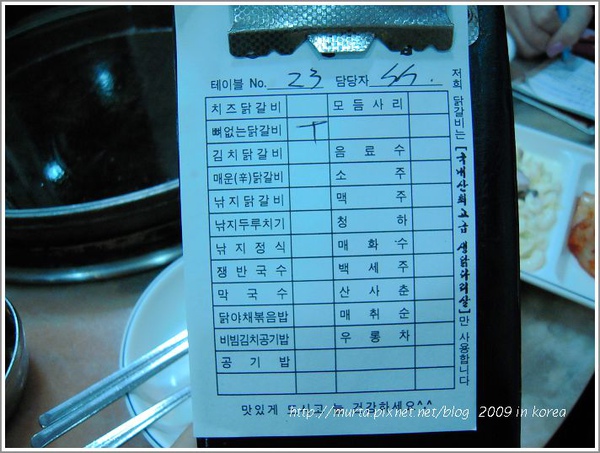 테이블 No. 23 담당자 SS.
치즈닭갈비 모듬사리
뼈없는닭갈비 T
김치닭갈비 음료수
매운(辛)닭갈비 소주
낚지닭갈비 맥주
낚지두루치기 청하
낚지정식 매화수
쟁반국수 백세주
막국수 산사춘
닭야채볶음밥 매취순
비빔김치공기밥 우롱차
공기밥
맛있게 드시고 는 건강하세요^^
저희 닭갈비는 [국내산최고급 생닭다리살]만 사용합니다
http://murta.pixnet.net/blog 2009 in korea